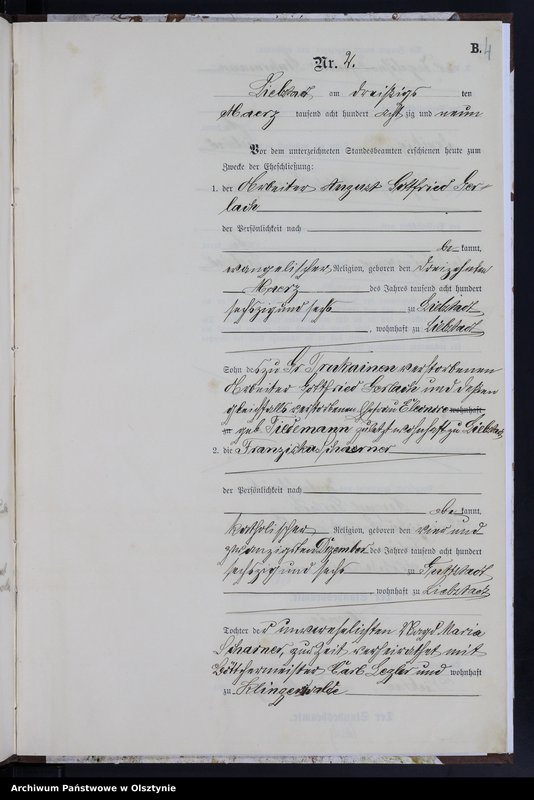 B. 4
Nr. 2.
Liebstadt am dreißigsten
Maerz tausend acht hundert achtzig und neun
Vor dem unterzeichneten Standesbeamten erschienen heute zum
Zwecke der Eheschließung:
1. der Arbeiter August Gottfried Ger-
lach
der Persönlichkeit nach
bekannt,
evangelischer Religion, geboren den dreizehnten
Maerz des Jahres tausend acht hundert
sechszig und sechs zu Liebstadt
, wohnhaft zu Liebstadt
Sohn des zu Gr verstorbenen
Arbeiter Gottfried Gerlach und dessen
gleichfalls verstorbenen Ehefrau Eleonore wohnhaft
zu geb. Tiedemann zuletzt wohnhaft zu Liebstadt
2. die Franziska Schaerner
der Persönlichkeit nach
bekannt,
katholischer Religion, geboren den vier und
zwanzigsten Dezember des Jahres tausend acht hundert
sechszig und sechs zu Guttstadt
, wohnhaft zu Liebstadt
Tochter der unverehelichten Magd Maria
Scharner, zur Zeit verheirathet mit
Böttchermeister Carl Legler und wohnhaft
zu Klingenwalde
Archiwum Państwowe w Olsztynie